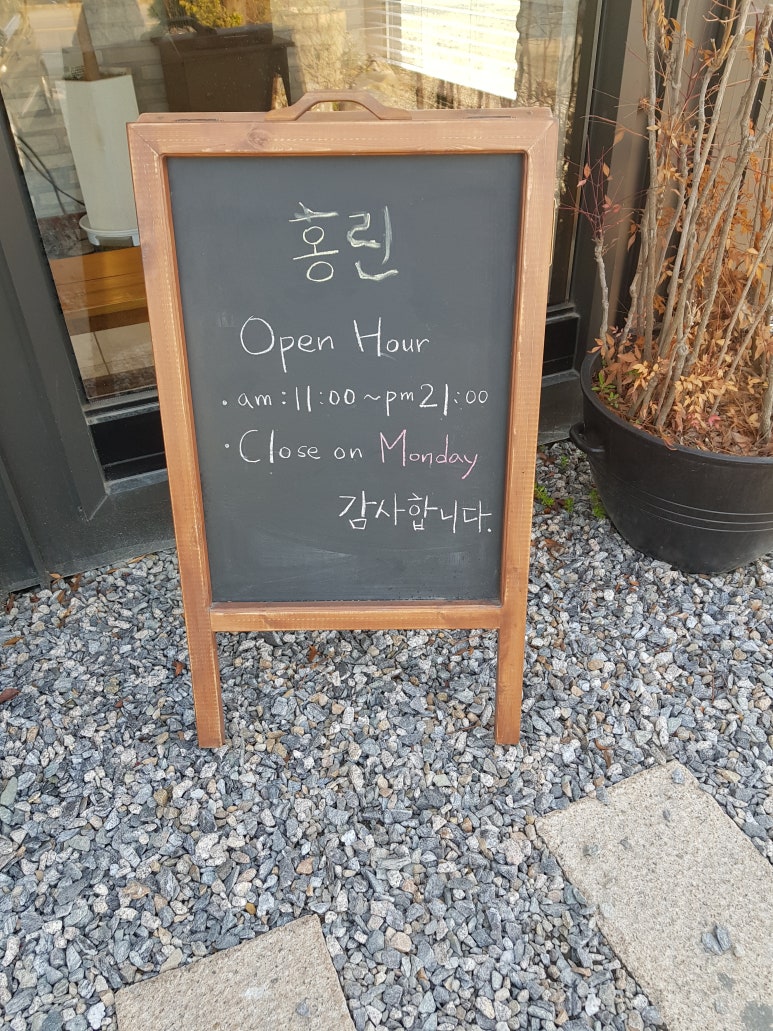 홍린
Open Hour
· am:11:00~pm21:00
· Close on Monday
감사합니다.